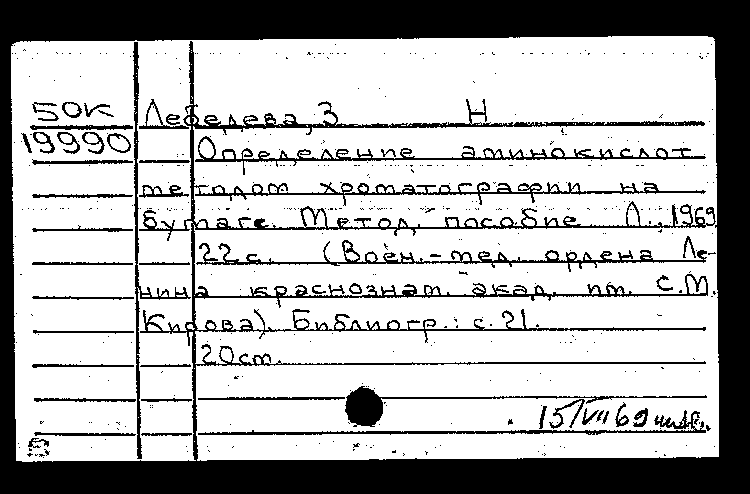 50К Лебедева, З Н
19990 Определение аминокислот
методом хроматографии на
бумаге. Метод. пособие Л., 1969
22с. (Воен.-мед. ордена Ле-
нина краснознам. акад. им. С.М.
Кирова). Библиогр.: с. 21.
20см.
15/VII 69